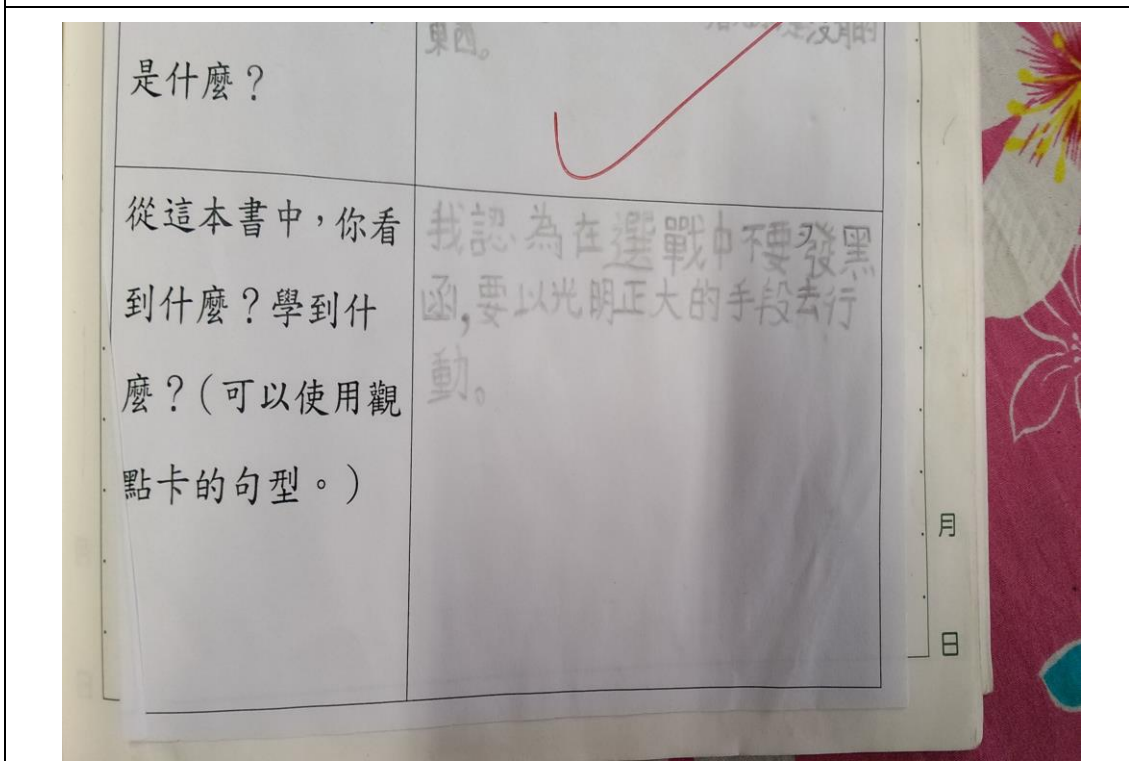 東西。
是什麼？
從這本書中，你看
到什麼？學到什
麼？（可以使用觀
點卡的句型。）
我認為在選戰中不要發黑
函，要以光明正大的手段去行
動。
月
日